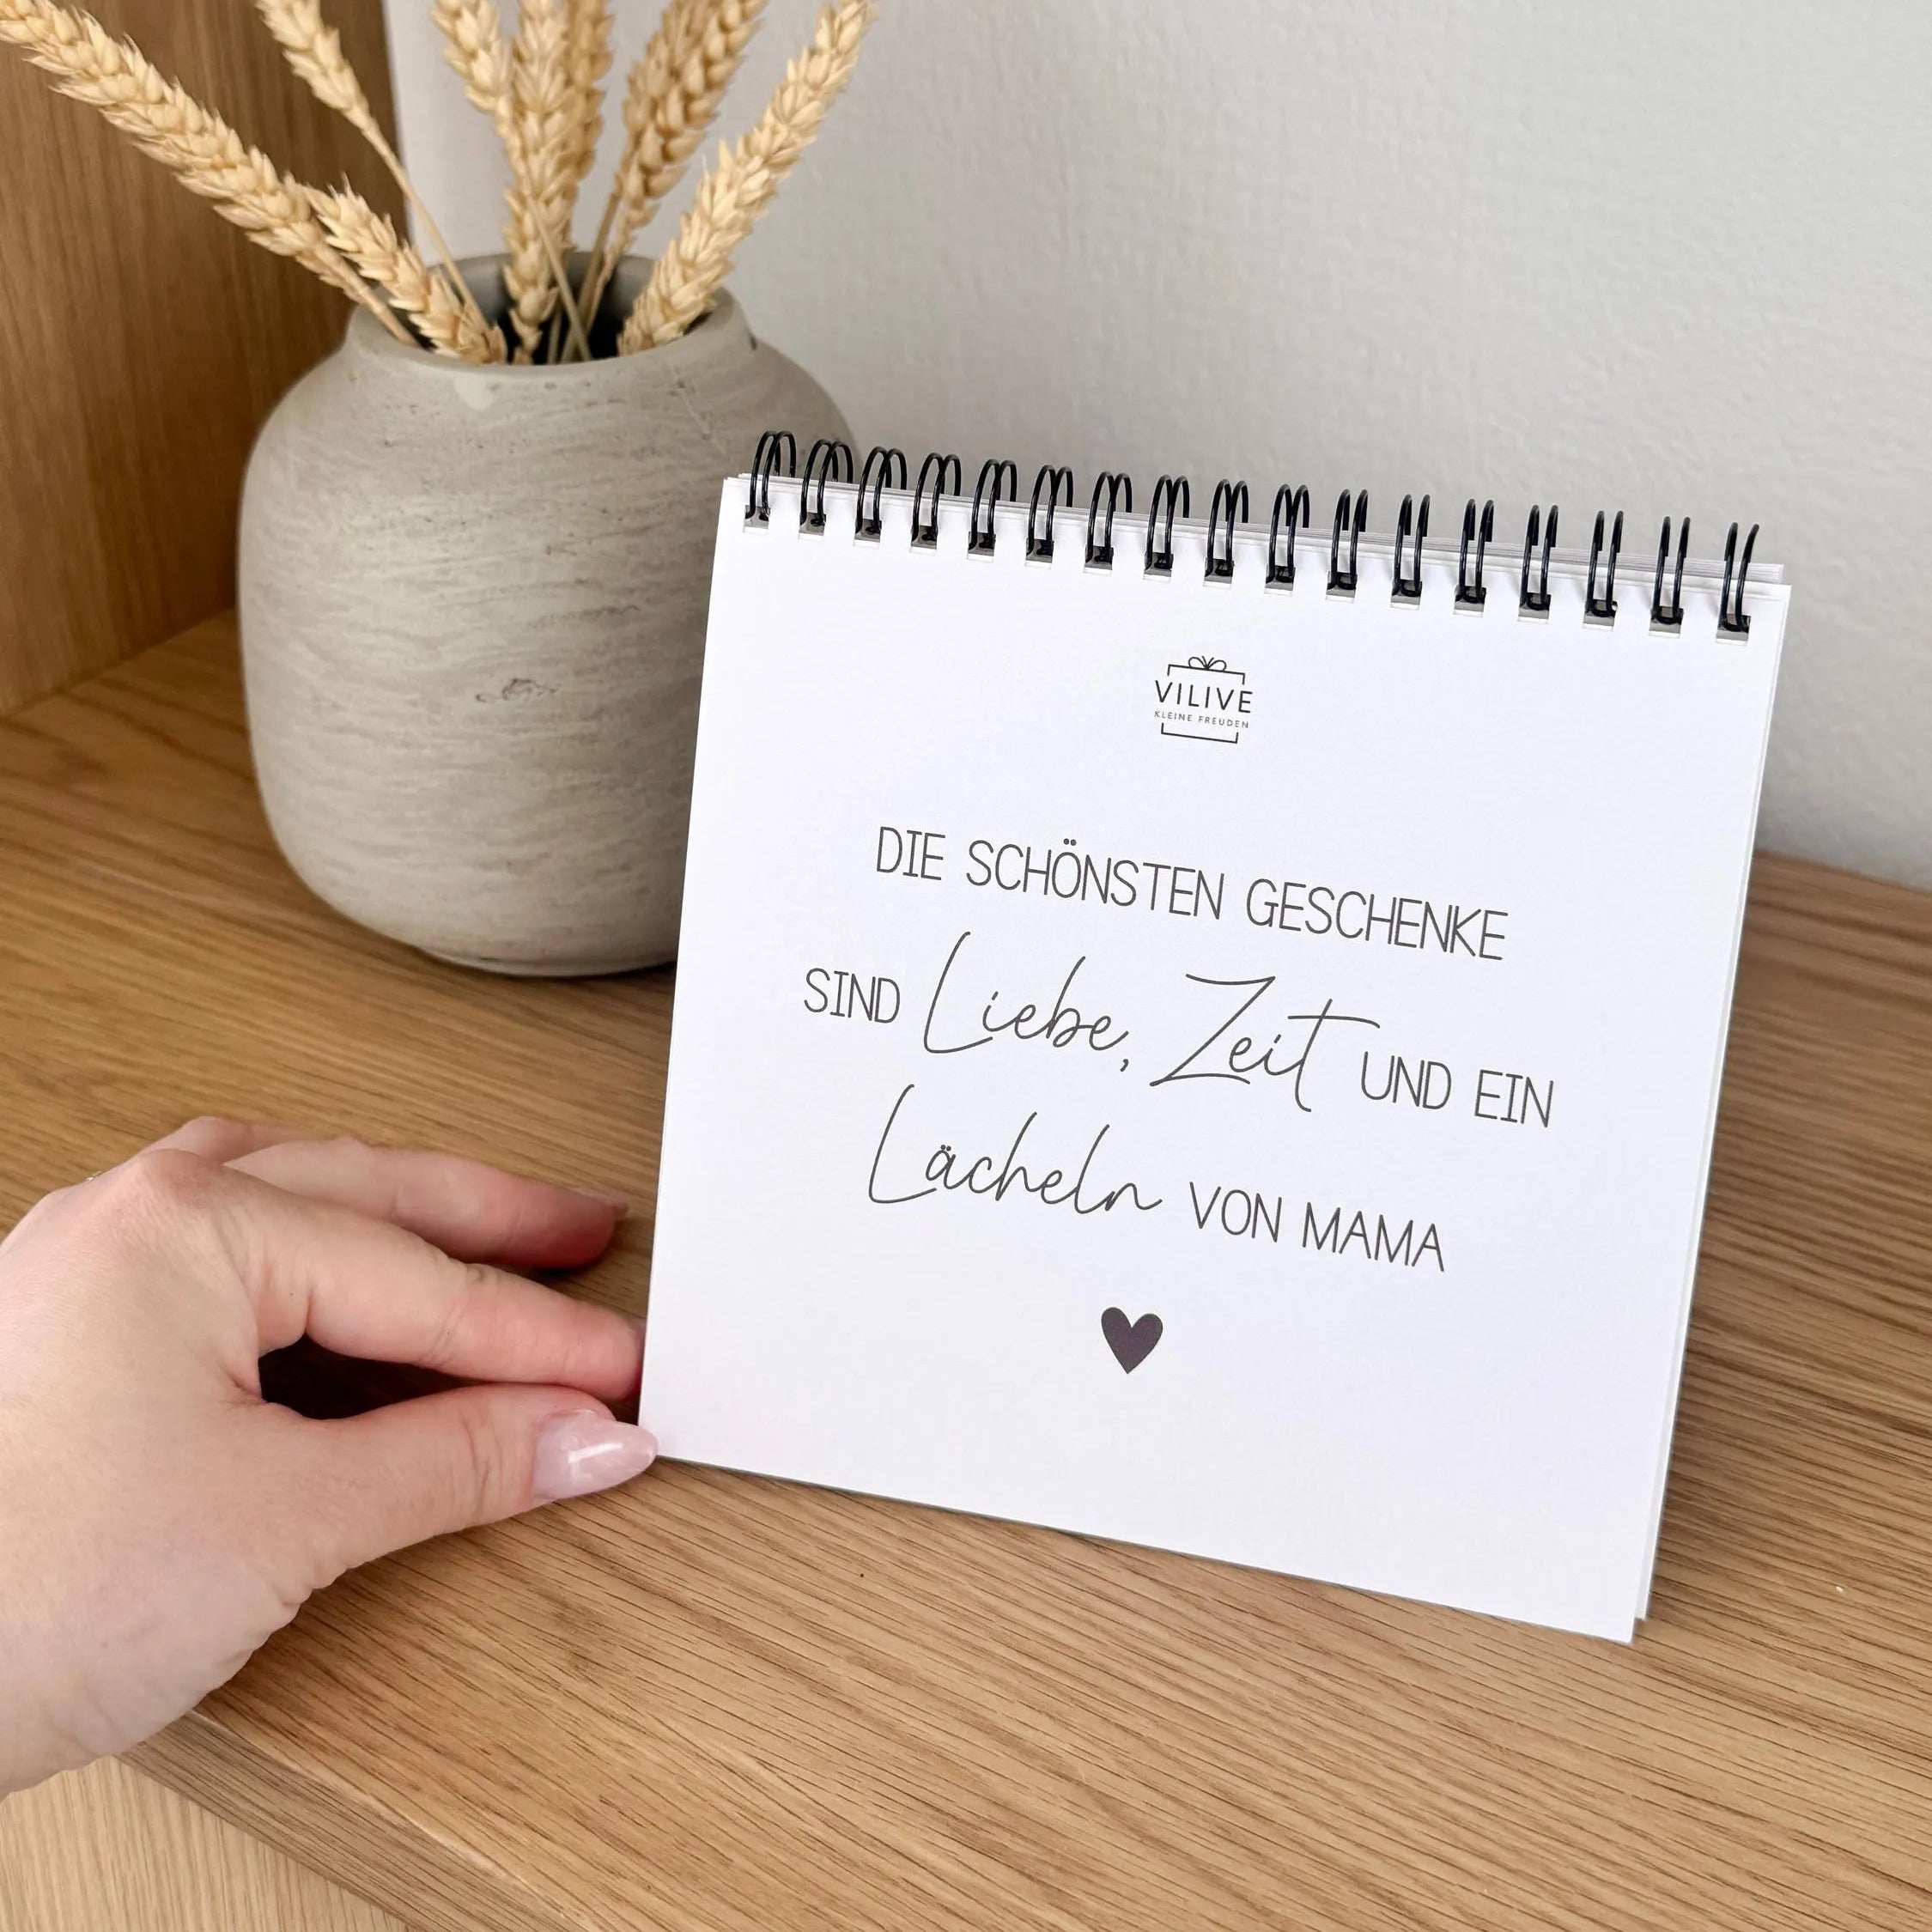 VILIVE
KLEINE FREUDEN
DIE SCHÖNSTEN GESCHENKE
SIND Liebe, Zeit UND EIN
Lächeln VON MAMA